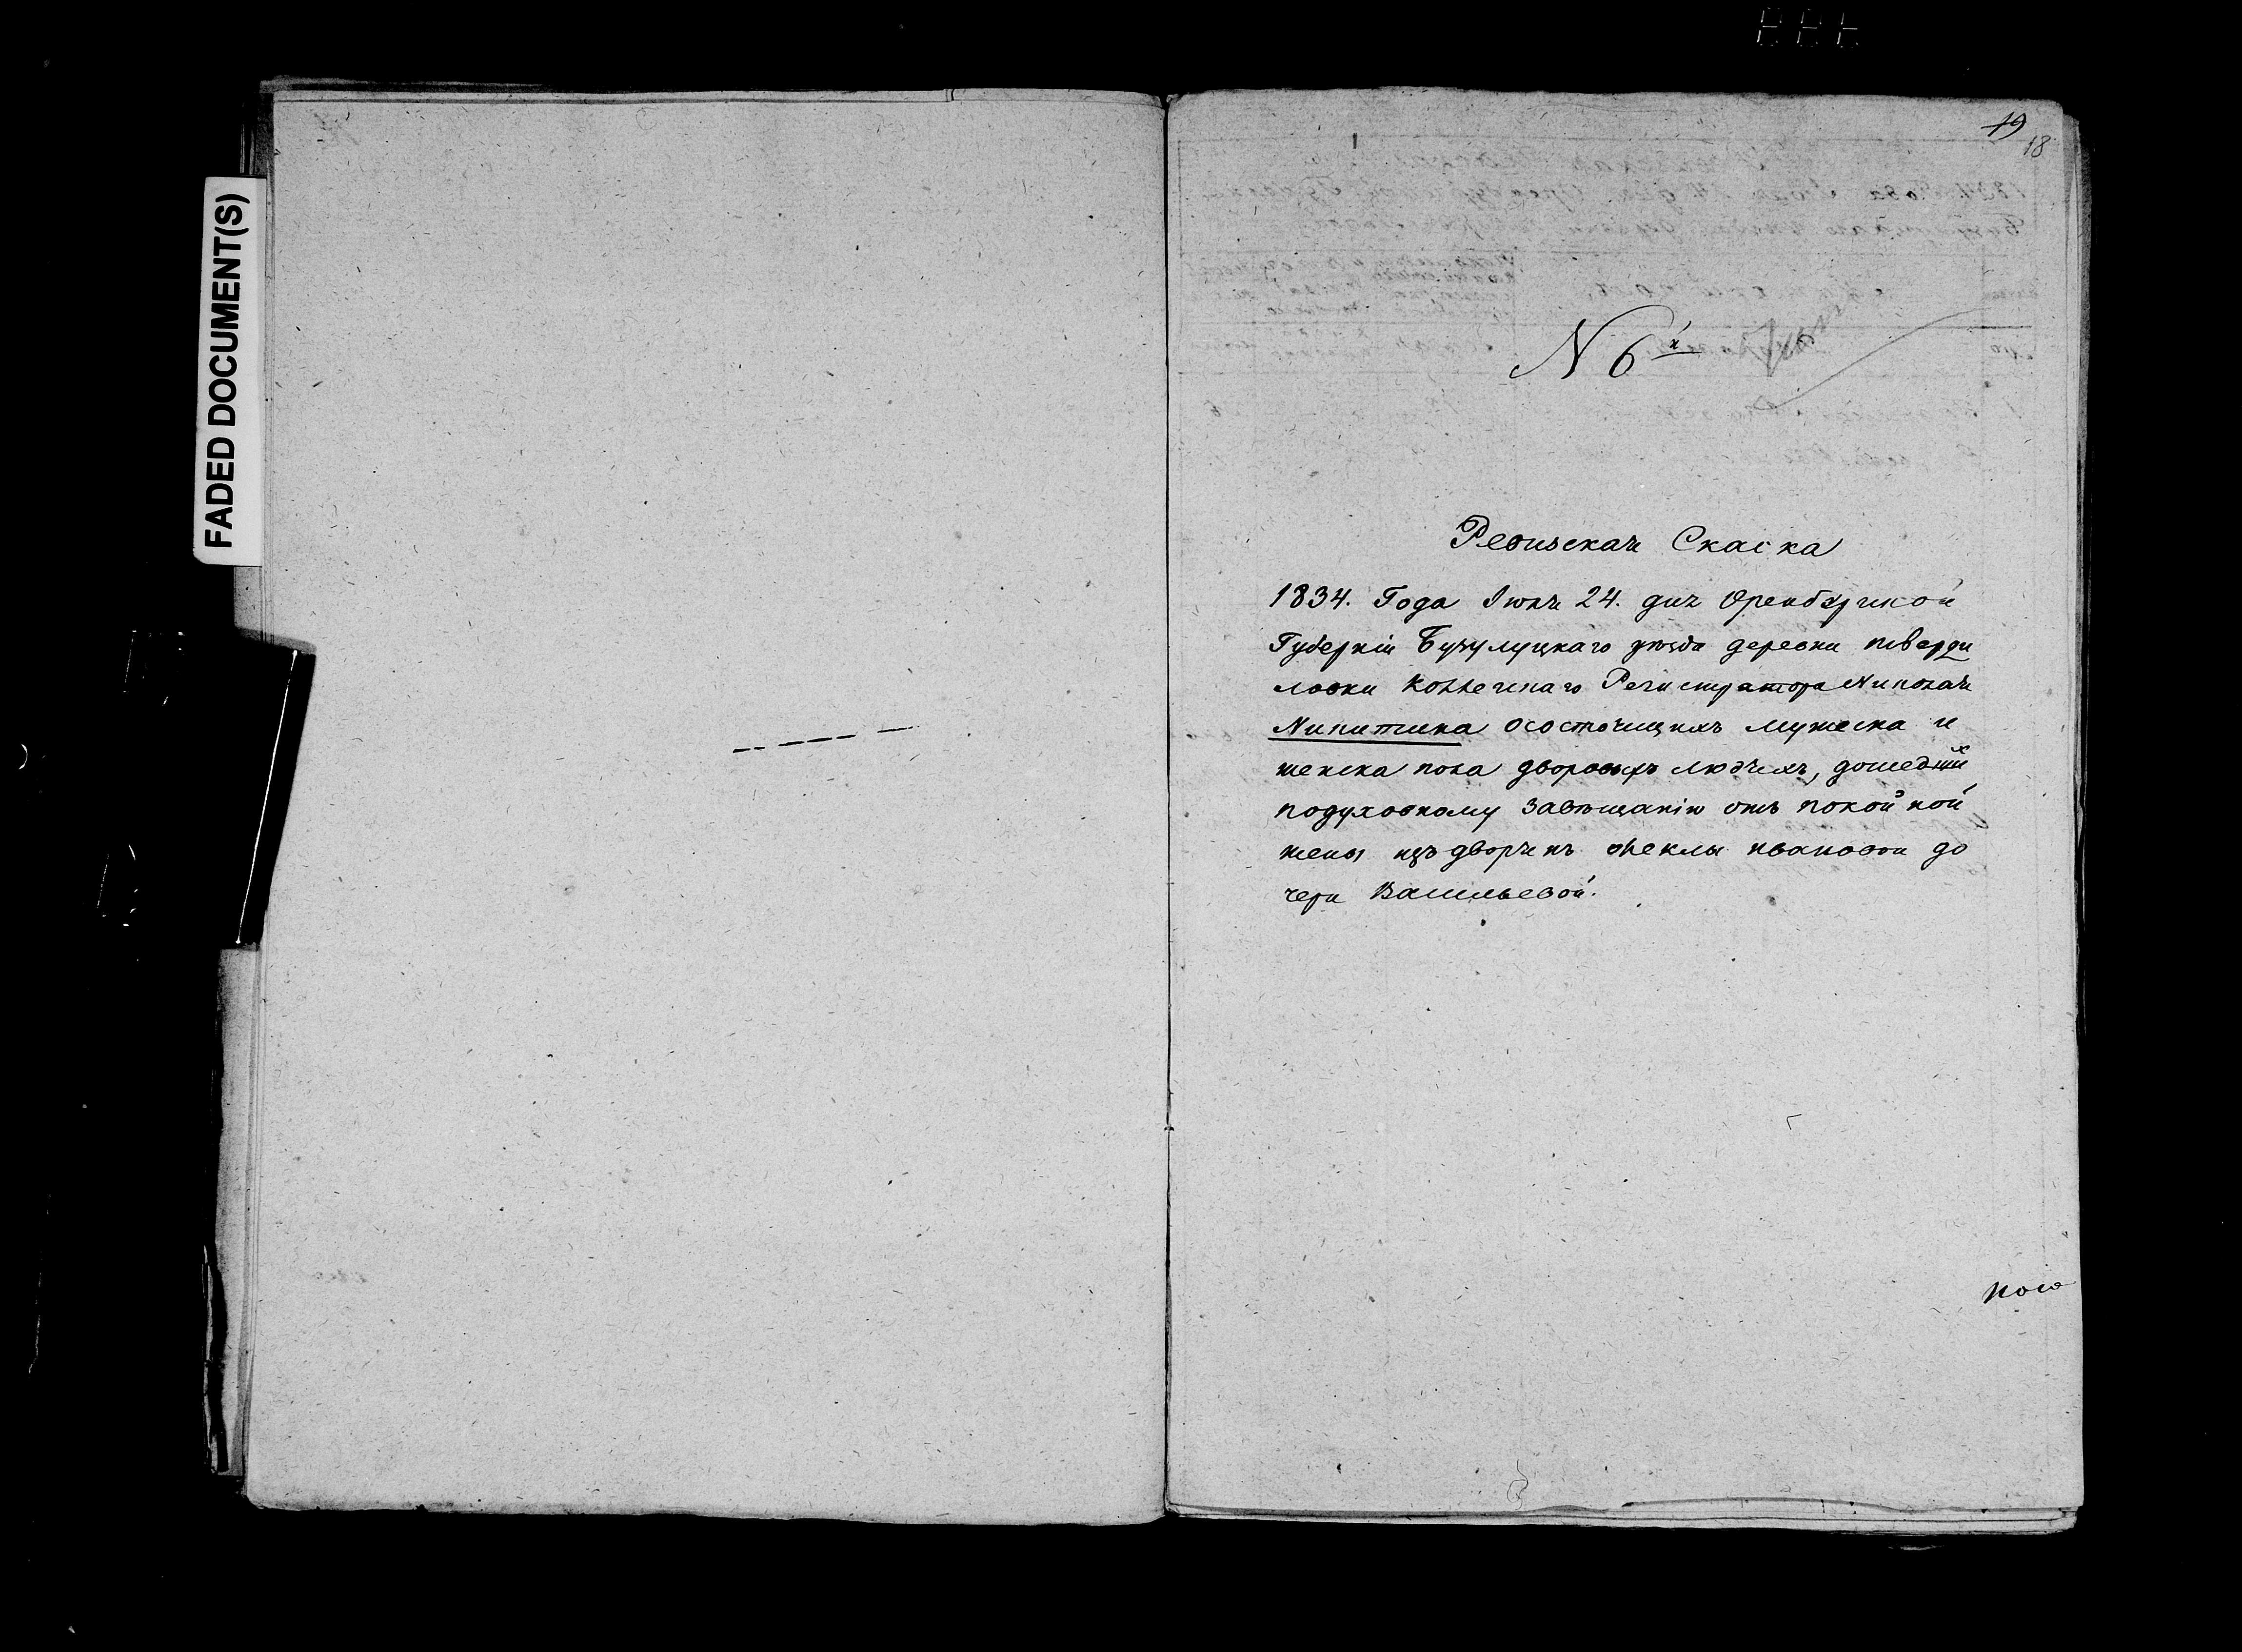 19
18
FADED DOCUMENT(S)
N 6й
Ревизская Скаска
1834. Года Июня 24. дня Оренбургской
Губерніи Бузулуцкаго уѣзда деревни тверди
ловки Коллегскаго Регистратора Николая
Никитина осостоящихъ мужеска и
женска пола дворовыхъ людяхъ, дошедших
подуховному завѣщанію отъ покойной
жены изъ дворянъ Феклы ивановой до
чери Васильевой.